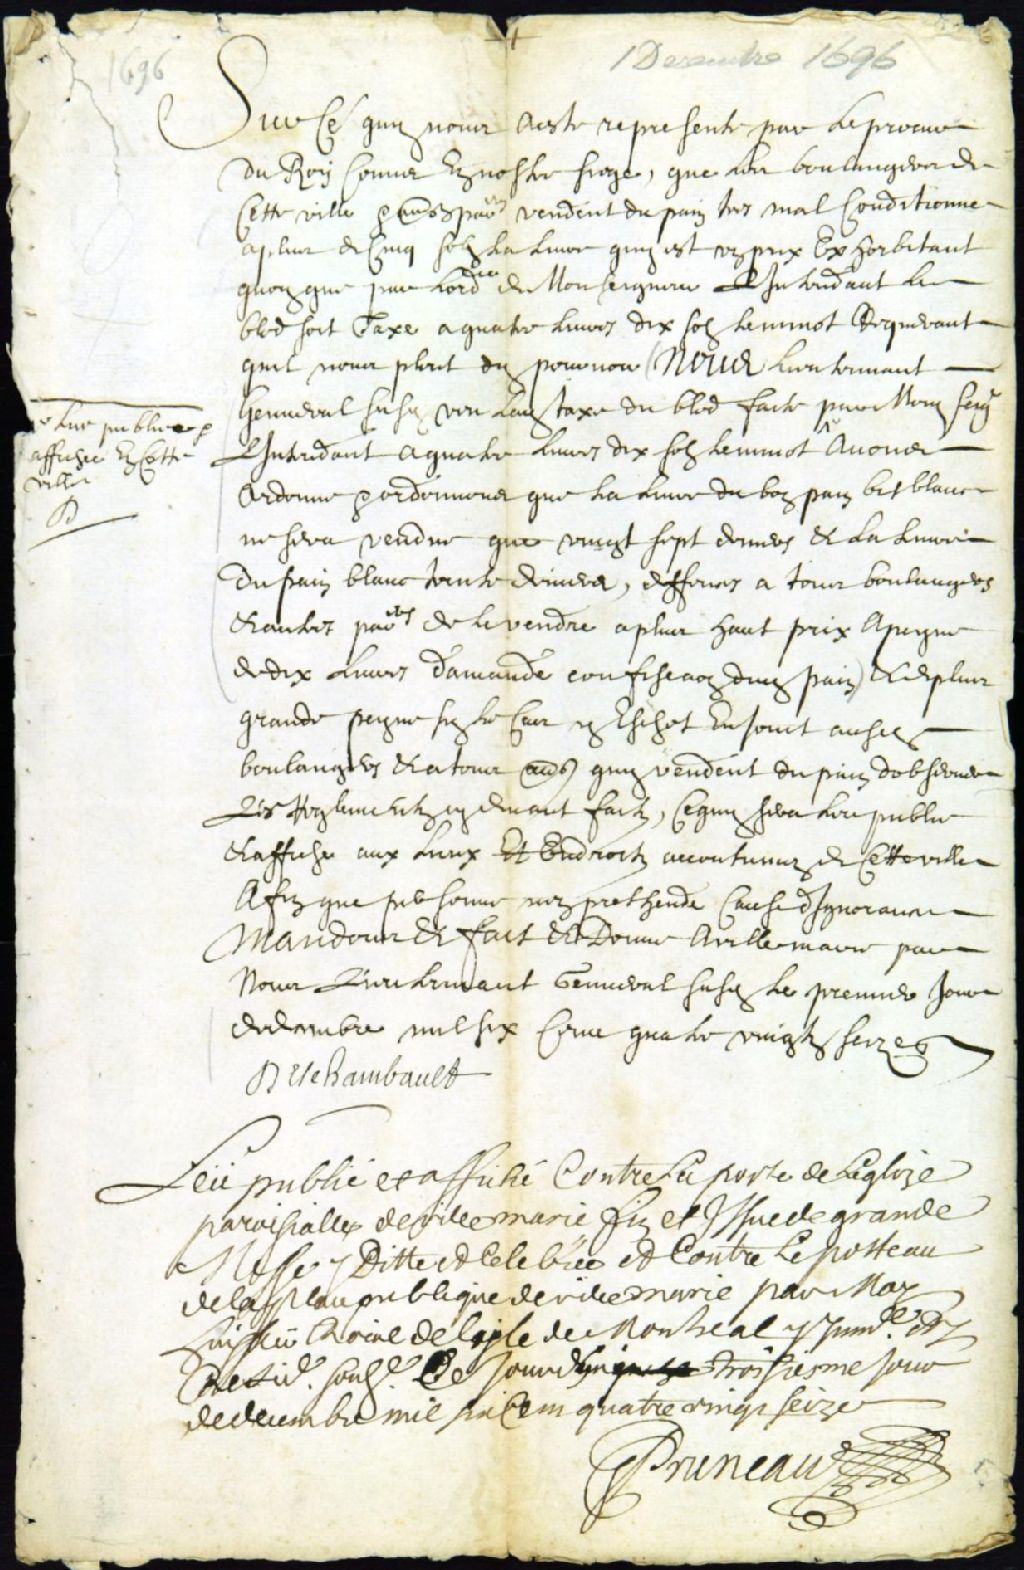 1696
1 Decembre 1696
Sur Ce quy nous A este represente par Le procur
du Roy Comis En nostre siege, que Les boulangers de
Cette ville & vendent du pain tres mal Conditionne
a plus de Cinq solz La Livre quy est un prix Exhorbitant
quoy que par Lord de Monseigneur L'Intendant Le
bled soit Taxe a quatre Livres dix solz Le minot Requerant
quil nous plut du pourvoir Nous Lieutennant
Genneral susd veu La taxe du bled faite par Mon seigr
L'Intendant a quatre Livres dix solz Le minot Avons
Ordonne & ordonnons que La Livre du bon pain bis blanc
ne sera vendue que vingt sept deniers Et La Livre
du pain blanc trente deniers, deffences a tous boulangers
Et autres de Le vendre a plus haut prix A peyne
de dix Livres d'amande confiscaon dud pain Et de plus
grande peyne sy Le Cas y Eschet Enjoint ausd
boulangers Et a tous quy vendent du pain d'observer
Les Reglements cy devant faits, Ce quy sera Leu publie
Et affiche aux Lieux Et Endroits accoutumez de Cette ville
Afin que personne n'en prethende Cause d'Ignorance
Mandons Et fait Et Donne A ville marie par
Nous Lieutennant Genneral susd Le premier Jour
de decembre mil six Cens quatre vingtz seize
Leue publiee &
affichee En Cette
ville
D
Deschambault
Leü publié et affiché Contre La porte de L'eglize
paroisialle de ville marie fin et Issue de grande
Messe y Ditte et Celebrée et Contre Le posteau
de la place publique de ville marie par Moy
huissier Roial de l'isle de Montreal y
Resid. souss. Ce jourdhuy troisiesme jour
de decembre mil six Cent quatre vingt seize
Pruneau